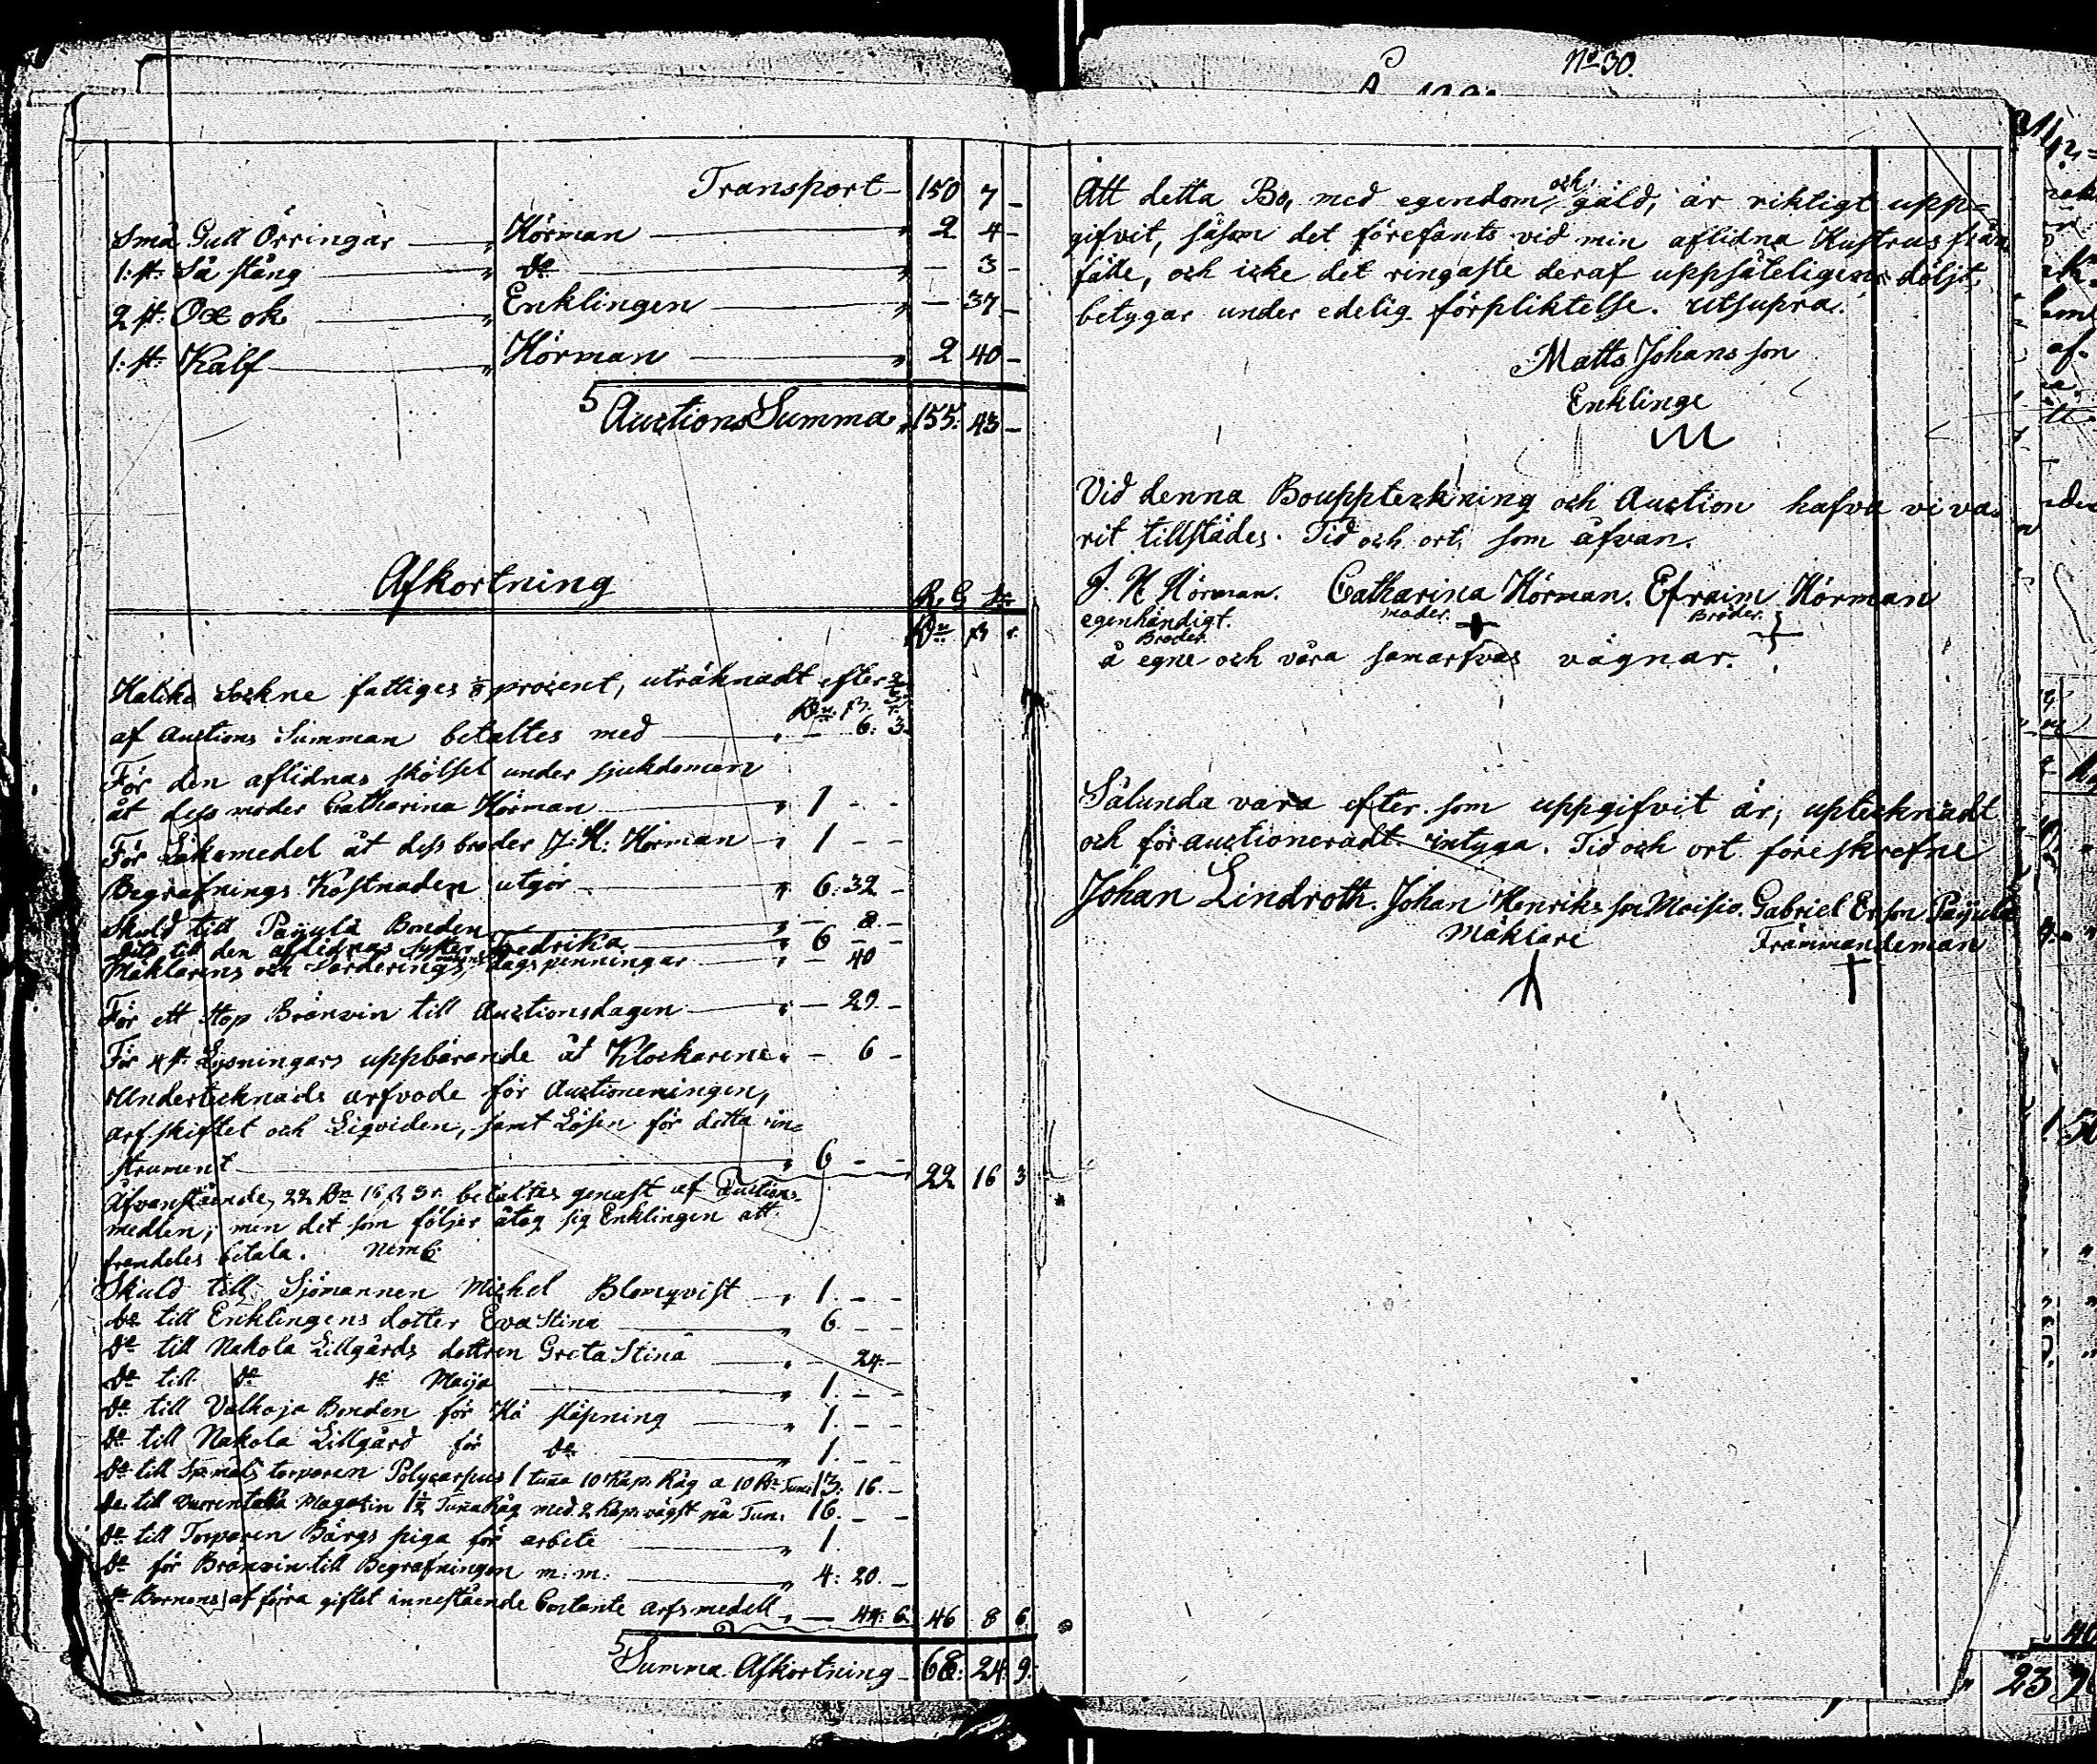 No 30.
Transport - 150 7 -
Små Gull Örringar — " Hörman — " 2 4 -
1: st. Så stång — " do — " - 3 -
2 st. Ox ok — " Enklingen — " - 37 -
1: st. Kalf — " Hörman — " 2 40 -
Auctions Summa " 155: 43 -
Afkortning
Halike Sockne fattiges procent, uträknadt efter
af Auctions Summan betaltes med — " - 6: 3.
För den aflidnas skötsel under sjukdomen
åt dess moder Catharina Hörman — " 1 - -
För Läkemedel åt dess broder J. H: Hörman — " 1 - -
Begrafnings Kostnaden utgör — " 6: 32 -
Skuld till Päyylä Bonden — " - 8 -
dito til den aflidnas syster Fredrika — " 6 - -
Mäklarens och Värderings dagspenningar — " - 40
För ett stop Bränvin till Auctionsdagen — " - 29. -
För 4 st. Lysningars uppbärande åt Klockarene " - 6 -
Undertecknads arfvode för Auctioneringen,
arfskiftet och Liqviden, samt Lösen för detta in=
strument — " 6 - - 22 16 3
Äfvanstående, 22 Rr 16 s 3 r. betaltes genast af Auctions-
medlen; men det som följer åtog sig Enklingen att
framdeles betala.
Skuld till Sjömannen Mickel Blomqvist — " 1. - -
do till Enklingens dotter Eva Stina — " 6. - -
do till Nakola Lillgårds dottren Greta Stina — " - 24 -
do till do do Maija — " 1. - -
do till Valkoja Bonden för Hö släpning — " 1. - -
do till Nakola Lillgård för do — " 1. - -
do till torparen Polycarpus 1 tuna 10 Kap. Råg a 10 Rr Tuna 13: 16. -
do till Magasin 1½ Tuna Råg med 2 kap. på Tun. 16. - -
do till Torparen Bärgs piga för arbete — " 1
do för Bränvin till Begrafningen m: m: — " 4: 20. -
do Barnens af förra giftet innestående Contante arfsmedell " - 44: 6. 46 8 6
Summa Afkortning - 68: 24: 9.
Att detta Bo, med egendom och gäld, är riktigt upp=
gifvit, såsom det förefants vid min aflidna Hustrus från
fälle, och icke det ringaste deraf uppsåteligen döljt,
betygar under edelig förpliktelse. Utsupra.
Matts Johans son
Enklinge
Vid denna Bouppteckning och Auction hafva vi va=
rit tillstädes. Tid och ort, som åfvan.
J. H Hörman. Catharina Hörman. Efraim Hörman
egenhändigt. moder. Broder.
Broder.
å egne och våra samarfvas vägnar.
Sålunda vara efter som uppgifvit är, uptecknadt
och förauctioneradt intyga. Tid och ort föreskrefne
Johan Lindroth. Johan Henriks son Moisio. Gabriel Erson Päyylä
Mäklare Främmandeman